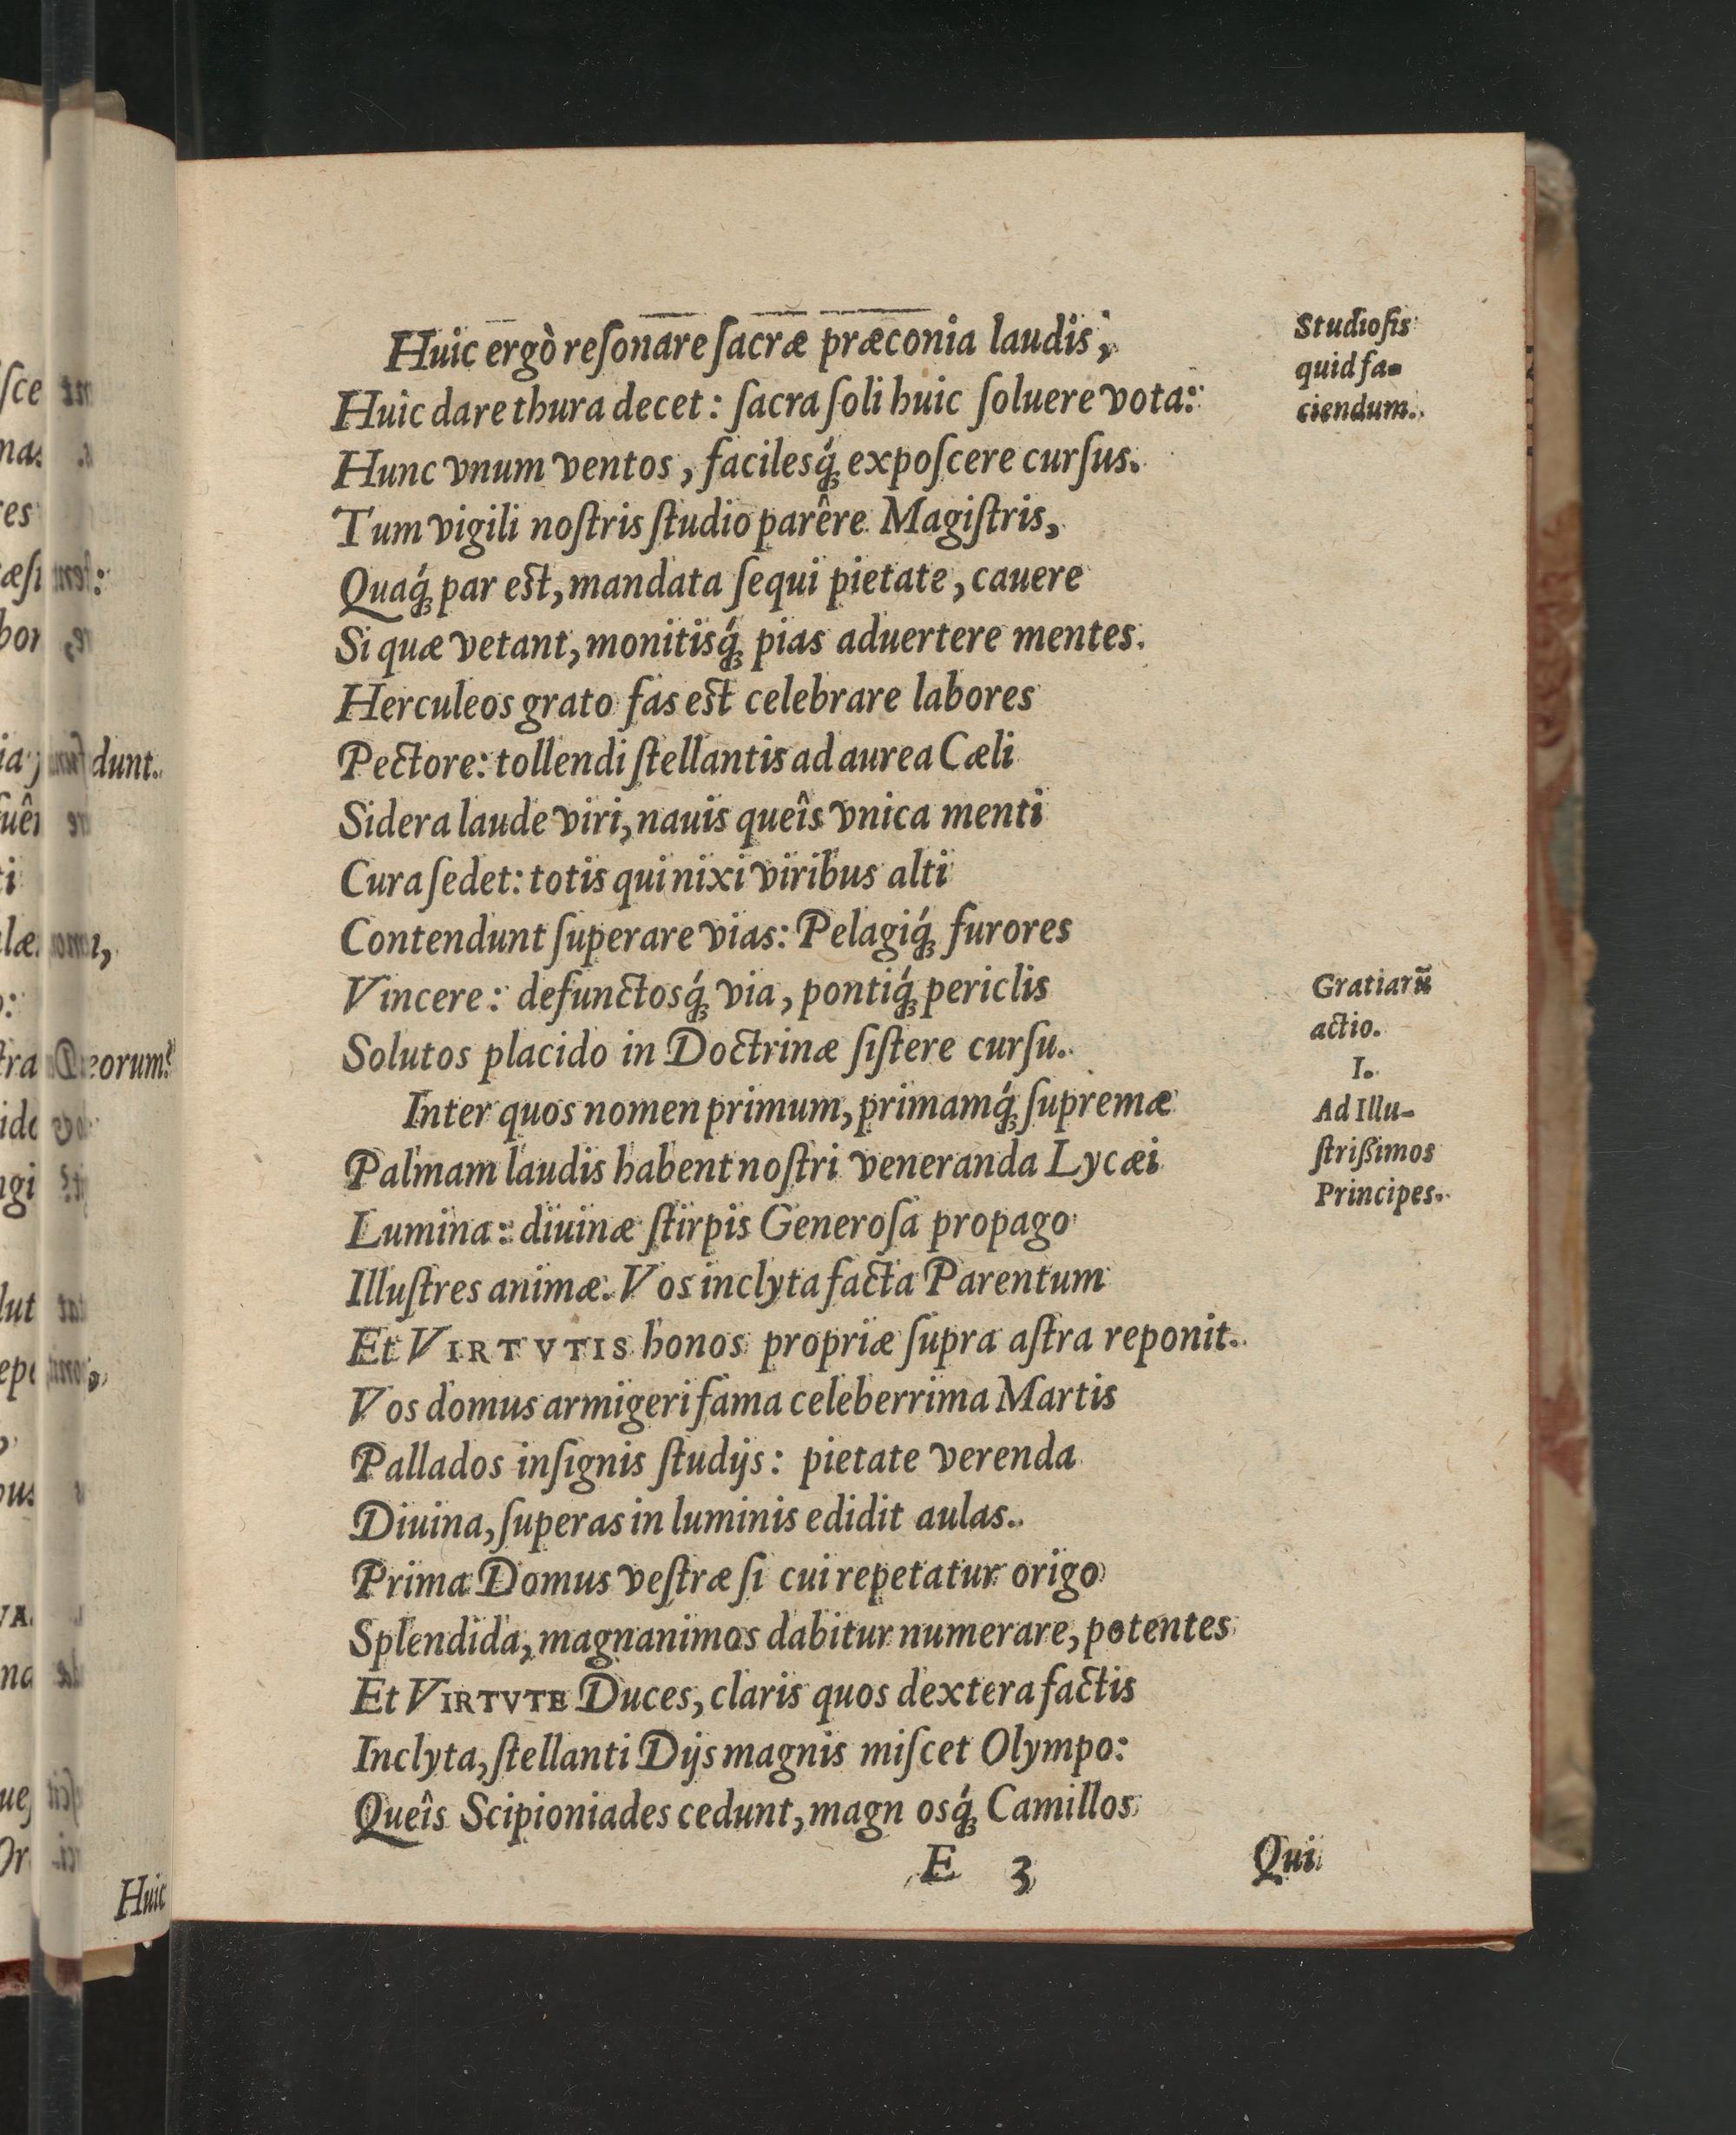 Huic ergò reſonare ſacræ præconia laudis;
Huic dare thura decet: ſacra ſoli huic ſoluere vota:
Hunc vnum ventos, facilesq́; expoſcere curſus.
Tum vigili noſtris ſtudio parêre Magiſtris,
Quaq́; par eſt, mandata ſequi pietate, cauere
Si quæ vetant, monitisq́; pias aduertere mentes.
Herculeos grato fas eſt celebrare labores
Pectore: tollendi ſtellantis ad aurea Cæli
Sidera laude viri, nauis queîs vnica menti
Cura ſedet: totis qui nixi viribus alti
Contendunt ſuperare vias: Pelagiq́; furores
Vincere: defunctosq́; via, pontiq́; periclis
Solutos placido in Doctrinæ ſiſtere curſu.
Inter quos nomen primum, primamq́; ſupremæ
Palmam laudis habent noſtri veneranda Lycæi
Lumina: diuinæ ſtirpis Generoſa propago
Illuſtres animæ. Vos inclyta facta Parentum
Et VIRTVTIS honos propriæ ſupra aſtra reponit.
Vos domus armigeri fama celeberrima Martis
Pallados inſignis ſtudijs: pietate verenda
Diuina, ſuperas in luminis edidit aulas.
Prima Domus veſtræ ſi cui repetatur origo
Splendida, magnanimos dabitur numerare, potentes
Et VIRTVTE Duces, claris quos dextera factis
Inclyta, ſtellanti Dijs magnis miſcet Olympo:
Queîs Scipioniades cedunt, magn osq́; Camillos
E 3
Qui
Studioſis
quid fa-
ciendum.
Gratiarū
actio.
I.
Ad Illu-
ſtriſsimos
Principes.
dunt.
Huic